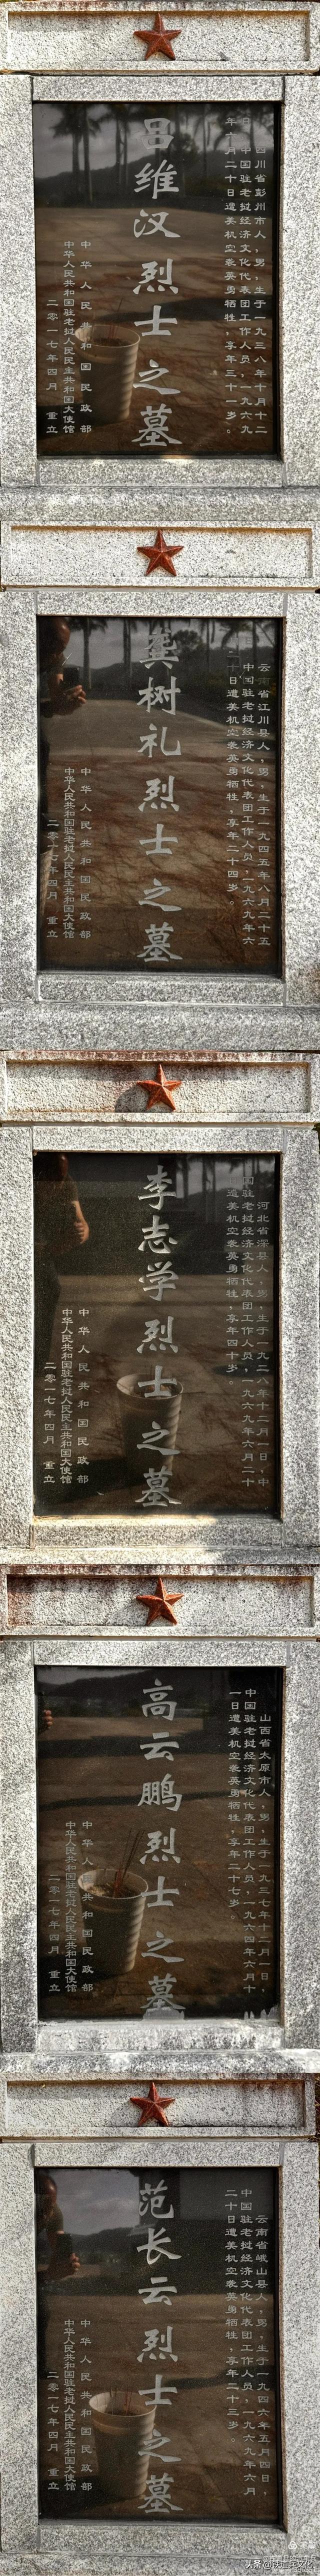 四川省彭州市人，男，生于一九三八年十月十二
日，中国驻老挝经济文化代表团工作人员，一九六九
年十月二十日遭美机空袭英勇牺牲，享年三十一岁。
吕维汉烈士之墓
中华人民共和国民政部
中华人民共和国驻老挝人民民主共和国大使馆
二零一七年四月 重立
云南省江川县人，男，生于一九四五年八月二十五
中国驻老挝经济文化代表团工作人员，一九六九年六
二十日遭美机空袭英勇牺牲，享年二十四岁。
龚树礼烈士之墓
中华人民共和国民政部
中华人民共和国驻老挝人民民主共和国大使馆
二零一七年四月 重立
河北省滦县人，男，生于一九二八年十二月一日，中
国驻老挝经济文化代表团工作人员，一九六九年六月二十
遭美机空袭英勇牺牲，享年四十岁
李志学烈士之墓
中华人民共和国民政部
中华人民共和国驻老挝人民民主共和国大使馆
二零一七年四月 重立
山西省太原市人，男，生于一九三七年十二月一日，
中国驻老挝经济文化代表团工作人员，一九六四年六月十
一日遭美机空袭英勇牺牲，享年二十七岁。
高云鹏烈士之墓
中华人民共和国民政部
中华人民共和国驻老挝人民民主共和国大使馆
二零一七年四月 重立
云南省峨山县人，男，生于一九四六年五月四日，
中国驻老挝经济文化代表团工作人员，一九六九年六月
二十日遭美机空袭英勇牺牲，享年二十三岁。
范长云烈士之墓
中华人民共和国民政部
中华人民共和国驻老挝人民民主共和国大使馆
二零一七年四月 重立